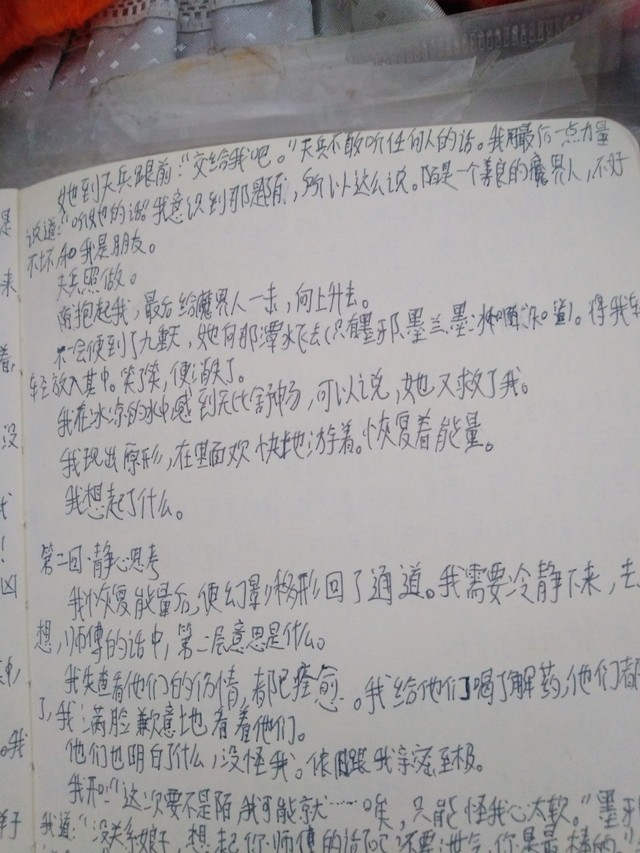 她到天兵跟前："交给我吧。"天兵不敢听任何人的话。我用最后一点力量
说道："听她的话。"我意识到那是陌，所以这么说。陌是一个善良的魔界人，不好
不坏，和我是朋友。
天兵照做。
陌抱起我，最后给魔界人一击，向上升去。
不一会便到了九重天，她向那潭水飞去（只有墨邪、墨兰、墨冰和陌知道）。将我轻
轻放入其中。笑了笑，便消失了。
我在冰凉的水中感到无比舒畅，可以说，她又救了我。
我现出原形，在里面欢快地游着。恢复着能量。
我想起了什么。
第二回：静心思考
我恢复能量后，便幻影移形回了通道。我需要冷静下来，去
想，师傅的话中，第二层意思是什么。
我先查看他们的伤情，都已痊愈。我给他们喝了解药，他们都
了，我满脸歉意地看着他们。
他们也明白了什么，没怪我。依旧跟我亲密至极。
我道："这次要不是陌，我可能就……唉，只能怪我心太软。"墨邪
我道："没关系，娘子，想起你师傅的话了吧 还要泄气，你是最棒的。"
是
来
着，
没
我
！
凶
，
。我
样子